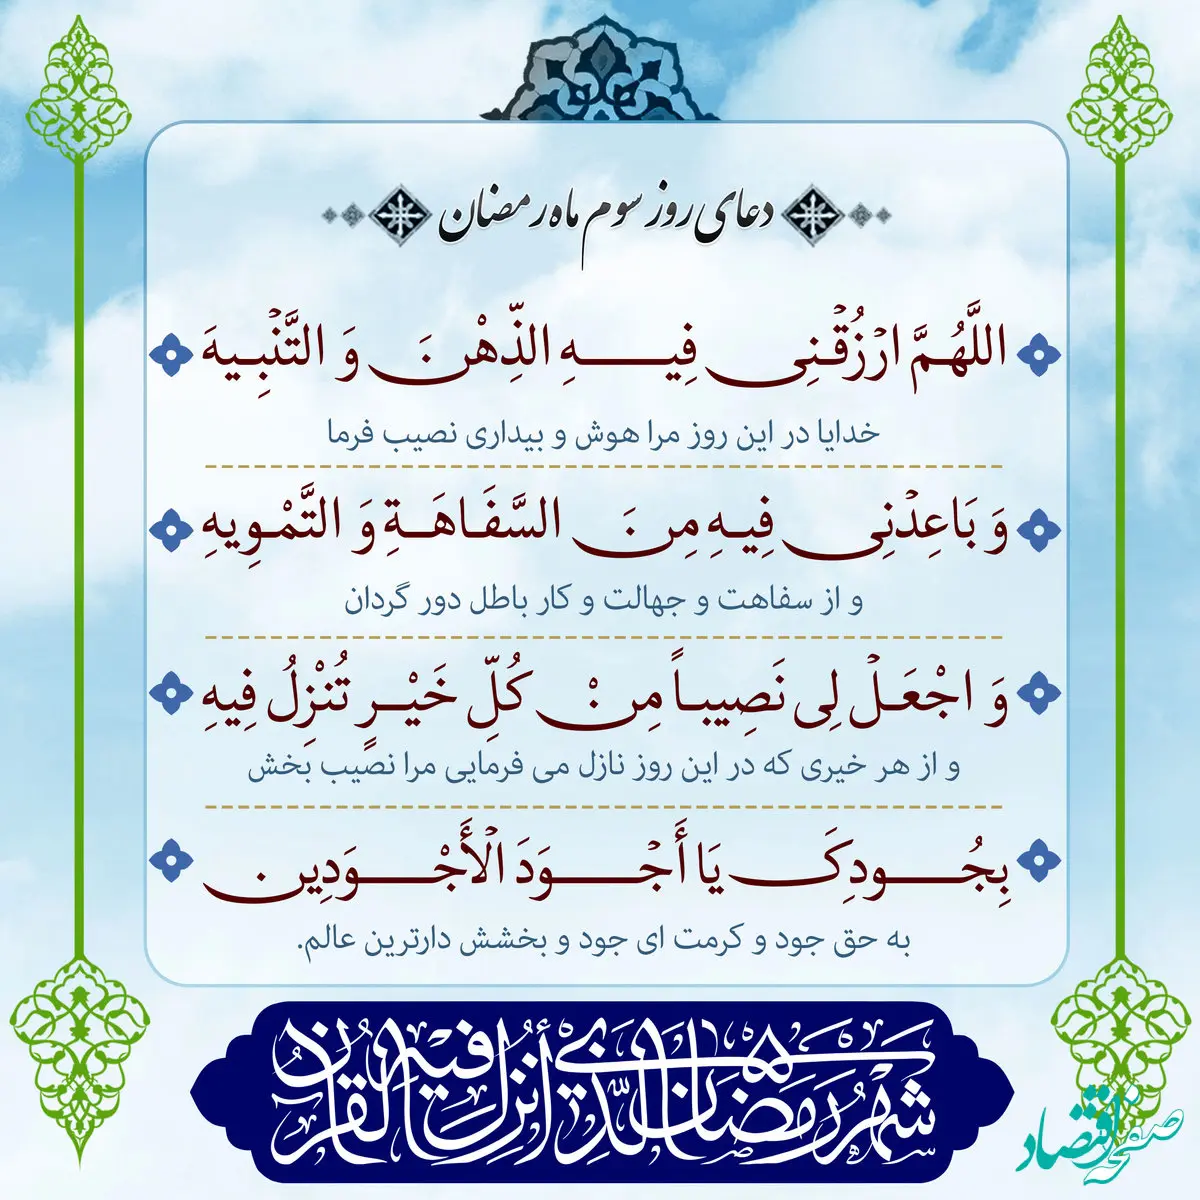 دعای روز سوم ماه رمضان
اللَّهُمَّ ارْزُقْنِی فِیهِ الذِّهْنَ وَ التَّنْبِیهَ
خدایا در این روز مرا هوش و بیداری نصیب فرما
وَ بَاعِدْنِی فِیهِ مِنَ السَّفَاهَةِ وَ التَّمْوِیهِ
و از سفاهت و جهالت و کار باطل دور گردان
وَ اجْعَلْ لِی نَصِیباً مِنْ کُلِّ خَیْرٍ تُنْزِلُ فِیهِ
و از هر خیری که در این روز نازل می فرمایی مرا نصیب بخش
بِجُودِکَ یَا أَجْوَدَ الْأَجْوَدِین
به حق جود و کرمت ای جود و بخشش دارترین عالم.
شَهْرُ رَمَضَانَ الَّذِی أُنْزِلَ فِیهِ الْقُرْآنُ
صفحه اقتصاد